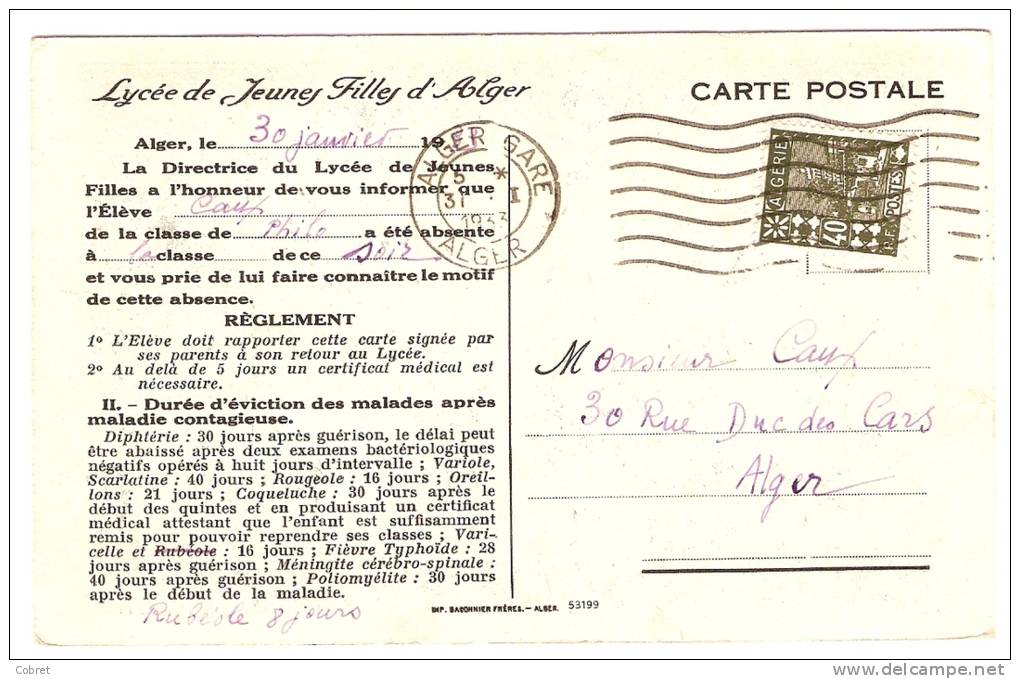 Lycée de Jeunes Filles d'Alger
Alger, le 30 janvier 19
La Directrice du Lycée de Jeunes
Filles a l'honneur de vous informer que
l'Élève
de la classe de Philo a été absente
à la classe de ce soir
et vous prie de lui faire connaître le motif
de cette absence.
RÈGLEMENT
1º L'Elève doit rapporter cette carte signée par
ses parents à son retour au Lycée.
2º Au delà de 5 jours un certificat médical est
nécessaire.
II. - Durée d'éviction des malades après
maladie contagieuse.
Diphtérie : 30 jours après guérison, le délai peut
être abaissé après deux examens bactériologiques
négatifs opérés à huit jours d'intervalle ; Variole,
Scarlatine : 40 jours ; Rougeole : 16 jours ; Oreil-
lons : 21 jours ; Coqueluche : 30 jours après le
début des quintes et en produisant un certificat
médical attestant que l'enfant est suffisamment
remis pour pouvoir reprendre ses classes ; Vari-
celle et Rubéole : 16 jours ; Fièvre Typhoïde : 28
jours après guérison ; Méningite cérébro-spinale :
40 jours après guérison ; Poliomyélite : 30 jours
après le début de la maladie.
Rubéole 8 jours
IMP. BACONNIER FRÈRES. - ALGER. 53199
ALGER GARE
5 *
31 - I
1933
ALGER
CARTE POSTALE
ALGERIE
40
POSTES
R.F.
Monsieur
30 Rue Duc des Cars
Alger
Cobret
www.delcampe.net